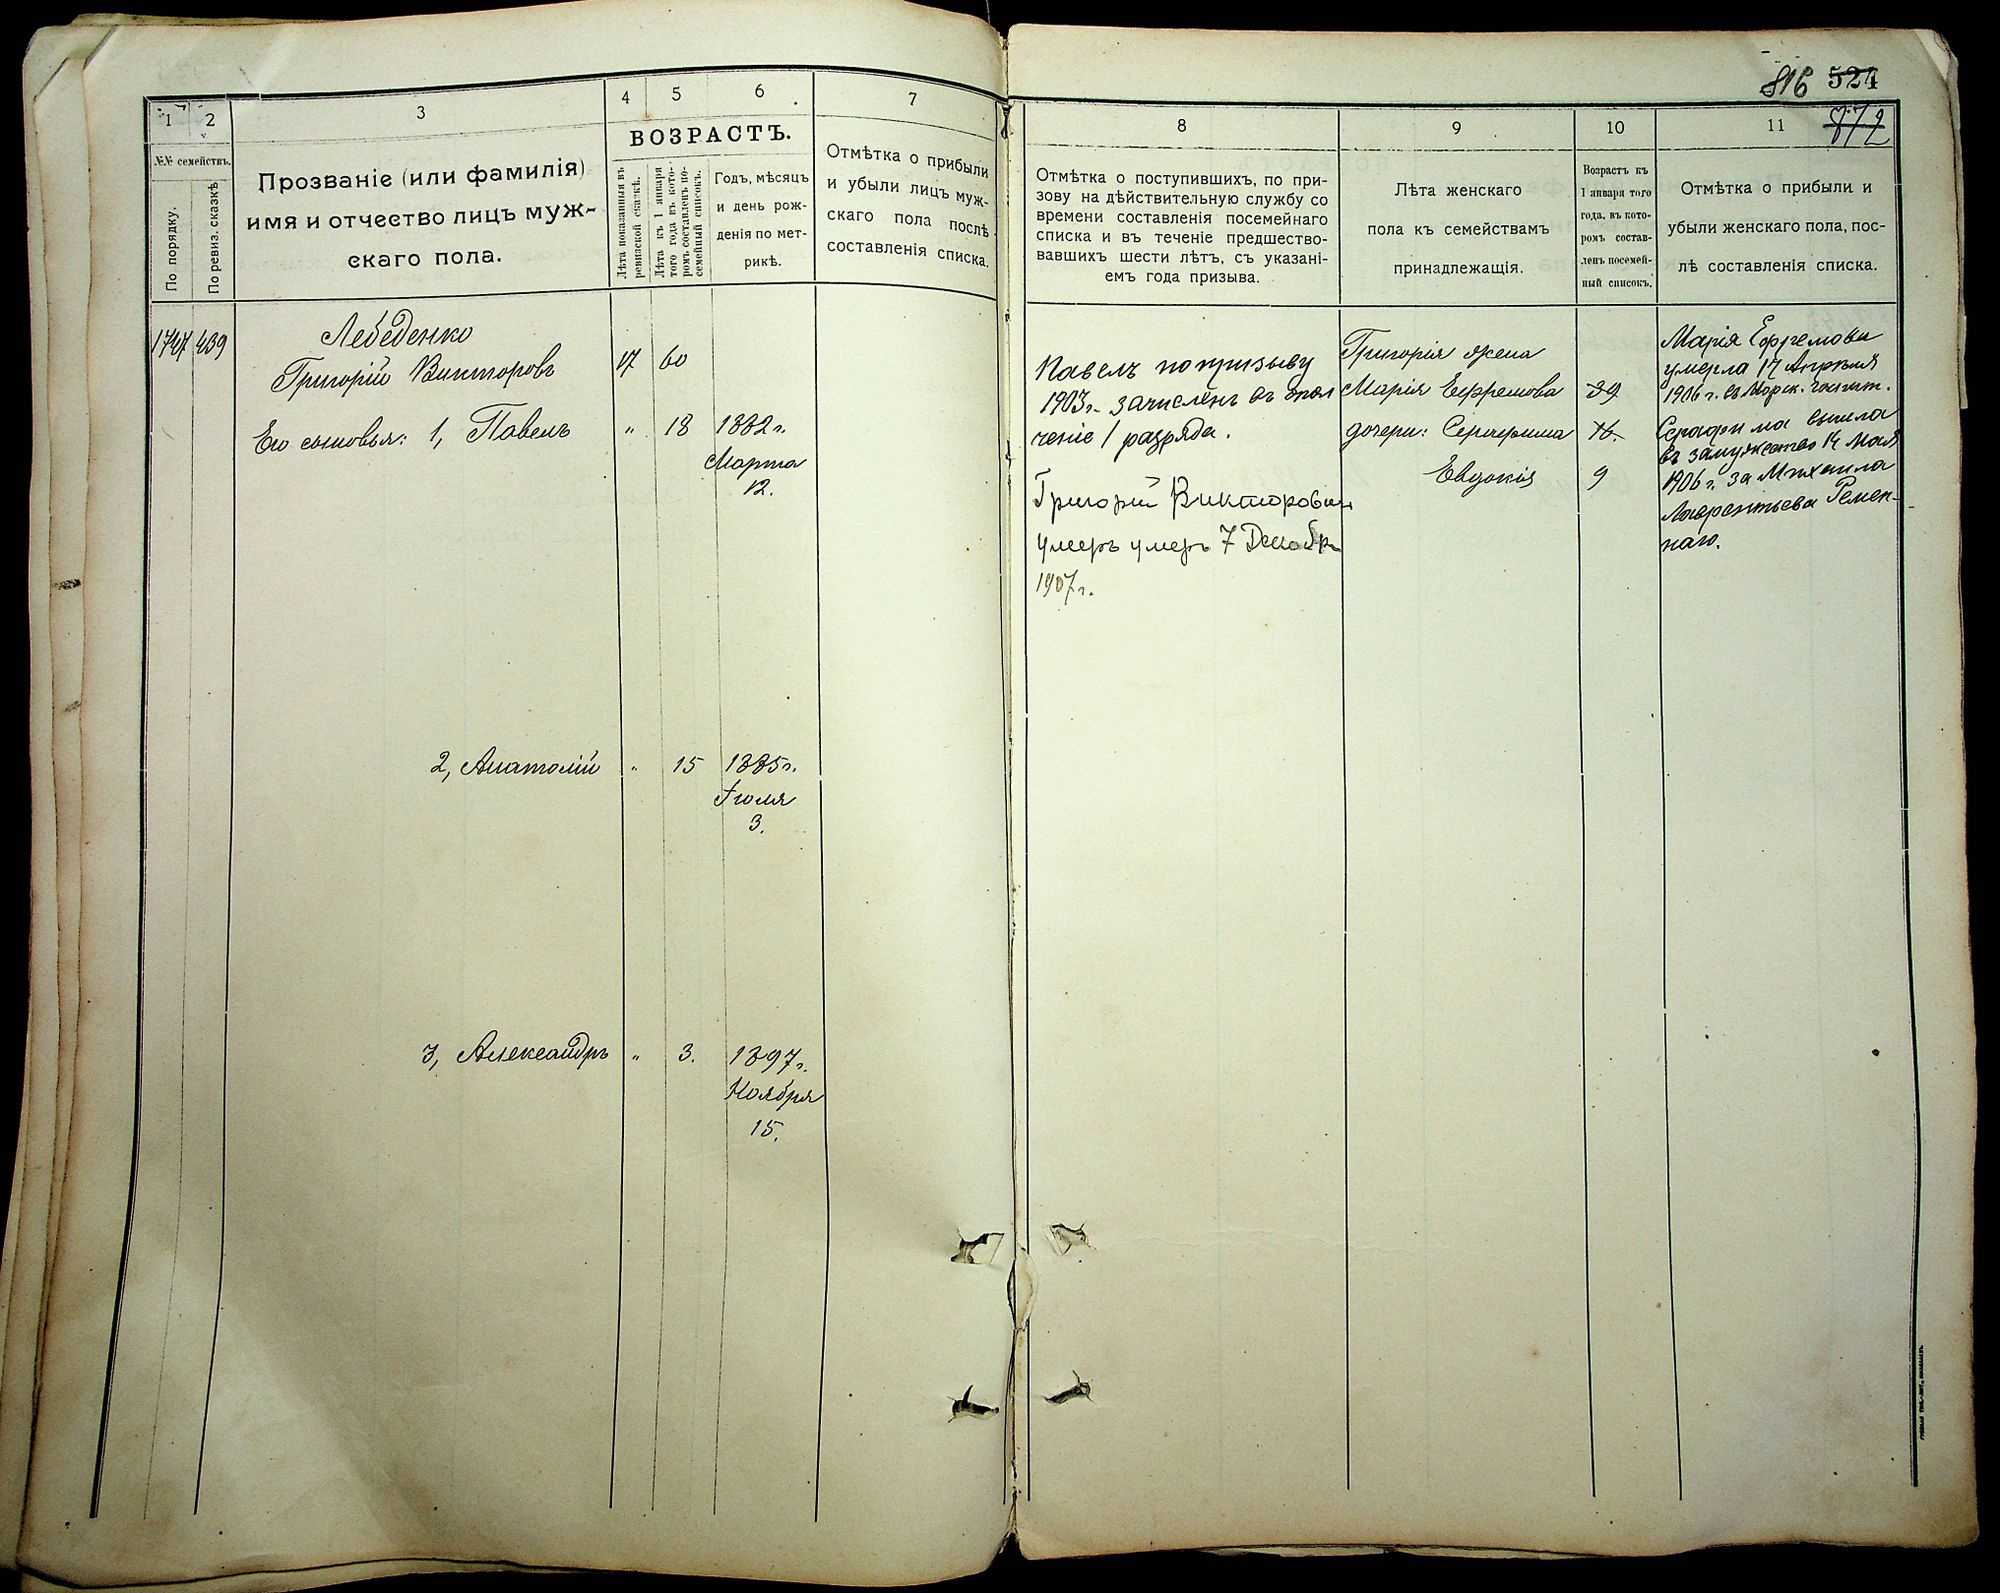 816 524
872
1
2
3
4
5
6
7
№№ семействъ.
По порядку.
По ревиз. сказкѣ
Прозваніе (или фамилія)
имя и отчество лицъ муж-
скаго пола.
ВОЗРАСТЪ.
Лѣта показанныя въ
ревизской сказкѣ.
Лѣта къ 1 января
того года въ кото-
ромъ составленъ по-
семейный списокъ.
Годъ, мѣсяцъ
и день рож-
денія по мет-
рикѣ.
Отмѣтка о прибыли
и убыли лицъ муж-
скаго пола послѣ
составленія списка.
1747 439
Лебеденко
Григорій Викторовъ 17 60
Его сыновья: 1, Павелъ " 18 1882 г.
Марта
12.
2, Анатолій " 15 1885 г.
Іюля
3.
3, Александръ " 3. 1897 г.
Ноября
15.
8
9
10
11
Отмѣтка о поступившихъ, по при-
зову на дѣйствительную службу со
времени составленія посемейнаго
списка и въ теченіе предшество-
вавшихъ шести лѣтъ, съ указані-
емъ года призыва.
Лѣта женскаго
пола къ семействамъ
принадлежащія.
Возрастъ къ
1 января того
года, въ кото-
ромъ состав-
ленъ посемей-
ный списокъ.
Отмѣтка о прибыли и
убыли женскаго пола, пос-
лѣ составленія списка.
Павелъ по призыву
1903 г. зачисленъ въ опол
ченіе 1 разряда.
Григорій Викторович
умеръ умеръ 7 Декабр
1907 г.
Григорія жена
Марія Ефремова 39
дочери: Серафима 16.
Евдокія 9
Марія Ефремова
умерла 17 Апрѣля
1906 г. въ Морск. госпит.
Серафима вышла
въ замужество 14 мая
1906 г. за Михаила
Лаврентьева Ремен-
наго.